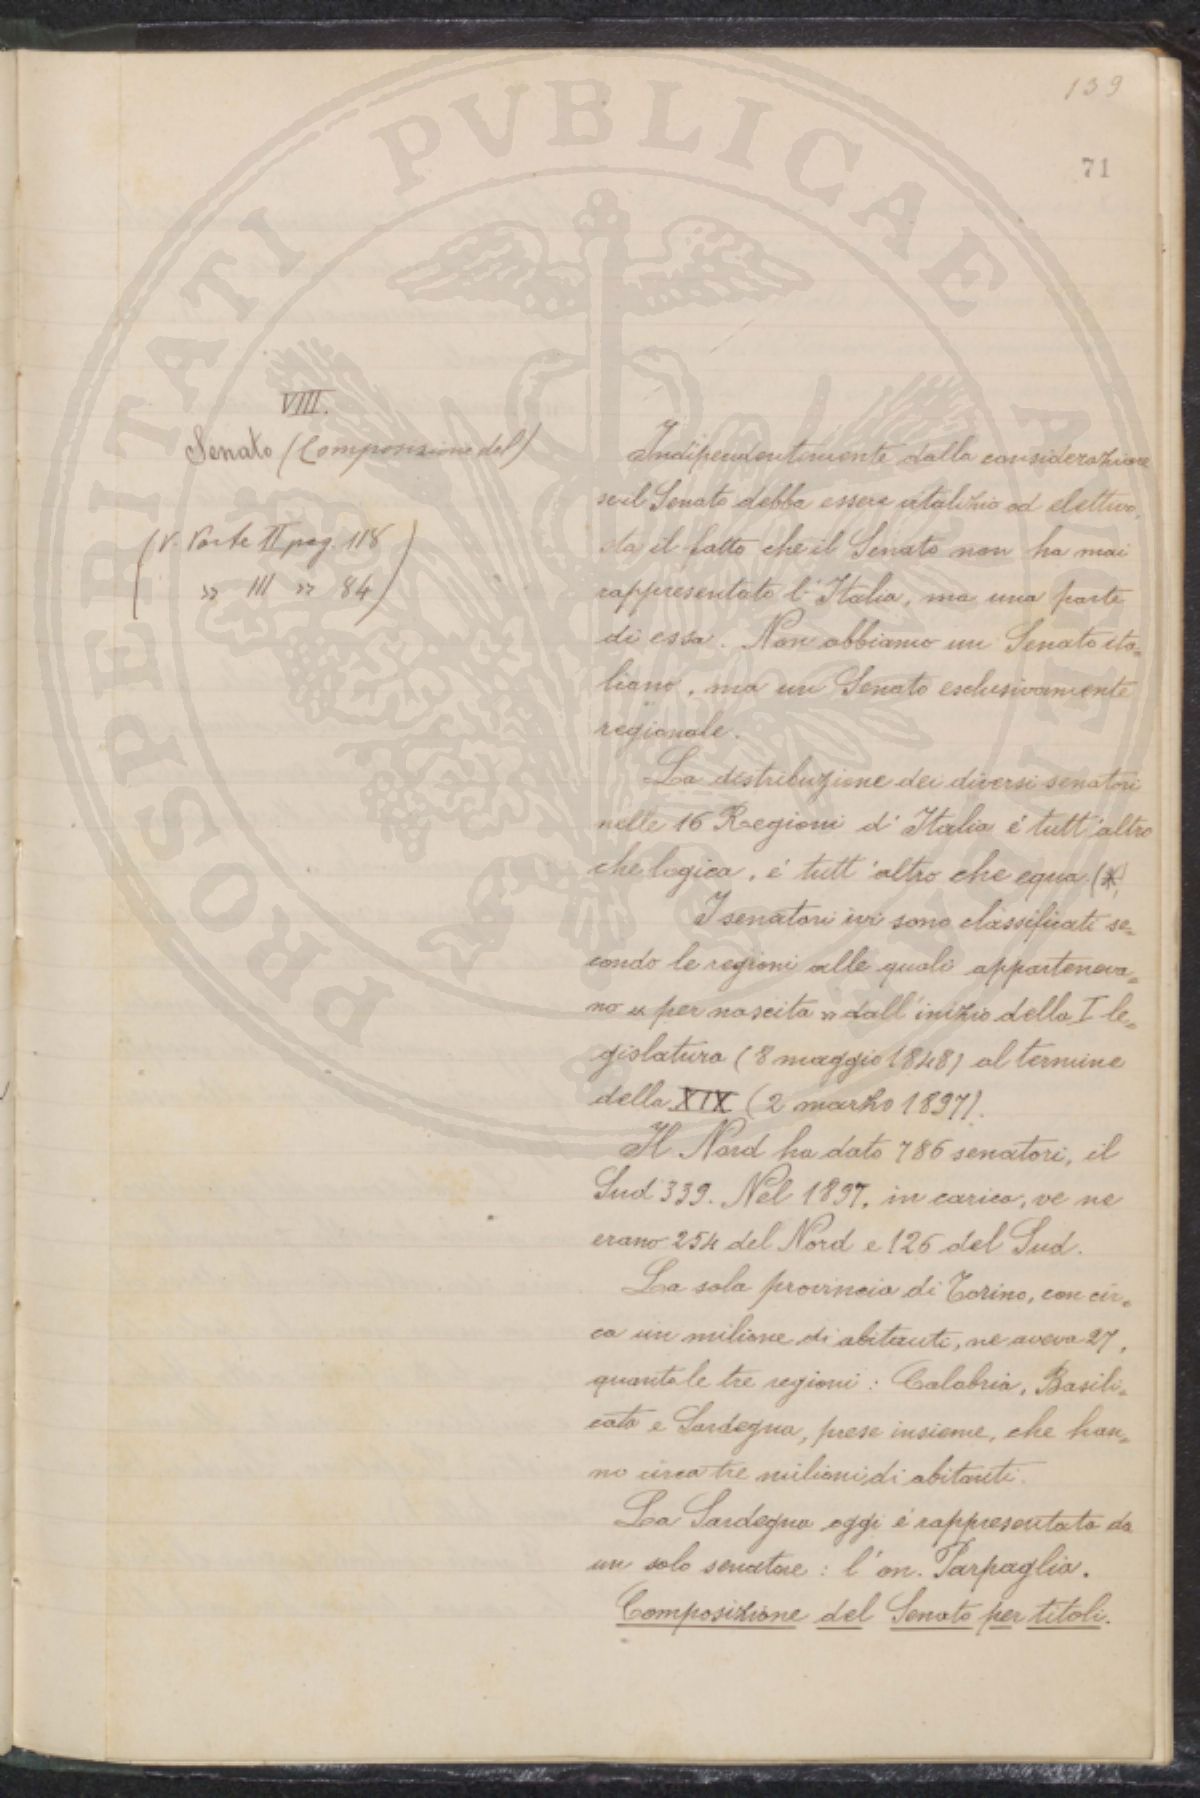 139
71
VIII.
Senato (Composizione del)
(V. Parte II pag. 118)
» III » 84)
Indipendentemente dalla considerazione
se il Senato debba essere vitalizio od elettivo,
sta il fatto che il Senato non ha mai
rappresentato l'Italia, ma una parte
di essa. Non abbiamo un Senato ita=
liano, ma un Senato esclusivamente
regionale.
La distribuzione dei diversi senatori
nelle 16 Regioni d'Italia é tutt'altro
che logica, é tutt'altro che equa (*)
I senatori ivi sono classificati se=
condo le regioni alle quali apparteneva=
no « per nascita » dall'inizio della I le=
gislatura (8 maggio 1848) al termine
della XIX (2 marzo 1897).
Il Nord ha dato 786 senatori, il
Sud 339. Nel 1897, in carica, ve ne
erano 254 del Nord e 126 del Sud.
La sola provincia di Torino, con cir=
ca un milione di abitanti, ne aveva 27,
quante le tre regioni: Calabria, Basili=
cata e Sardegna, prese insieme, che han=
no circa tre milioni di abitanti.
La Sardegna oggi é rappresentata da
un solo senatore: l'on. Parpaglia.
Composizione del Senato per titoli.
PROSPERITATI PVBLICAE